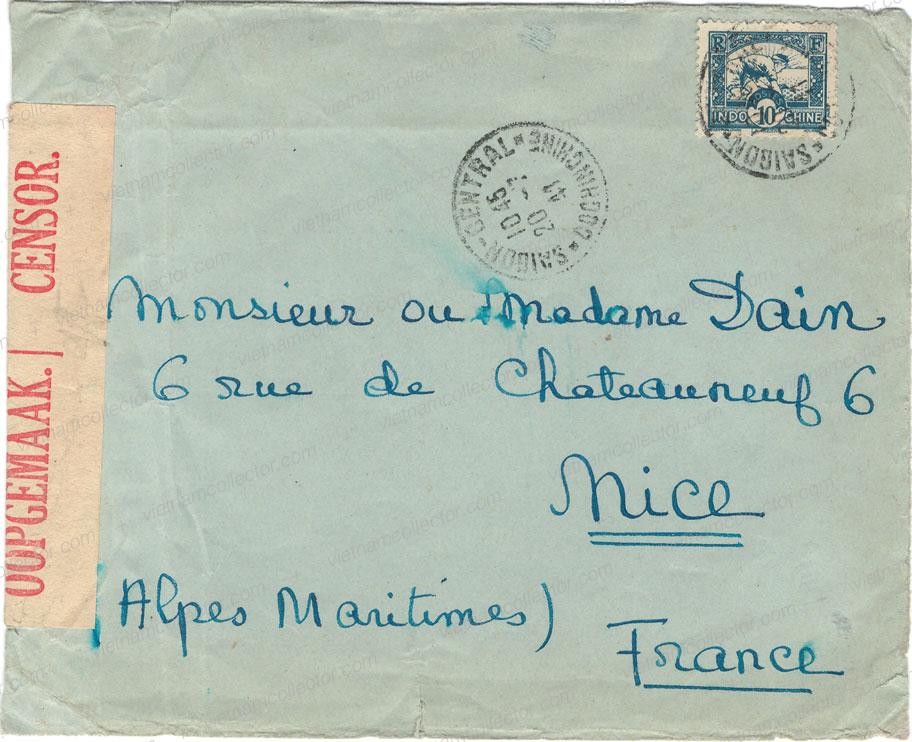 R F
POSTES
INDO 10 CHINE
SAIGON
SAIGON-CENTRAL * COCHINCHINE *
10 45
20
41
OOPGEMAAK. | CENSOR.
Monsieur ou Madame Dain
6 rue de Chateauneuf 6
Nice
(Alpes Maritimes)
France
vietnamcollector.com